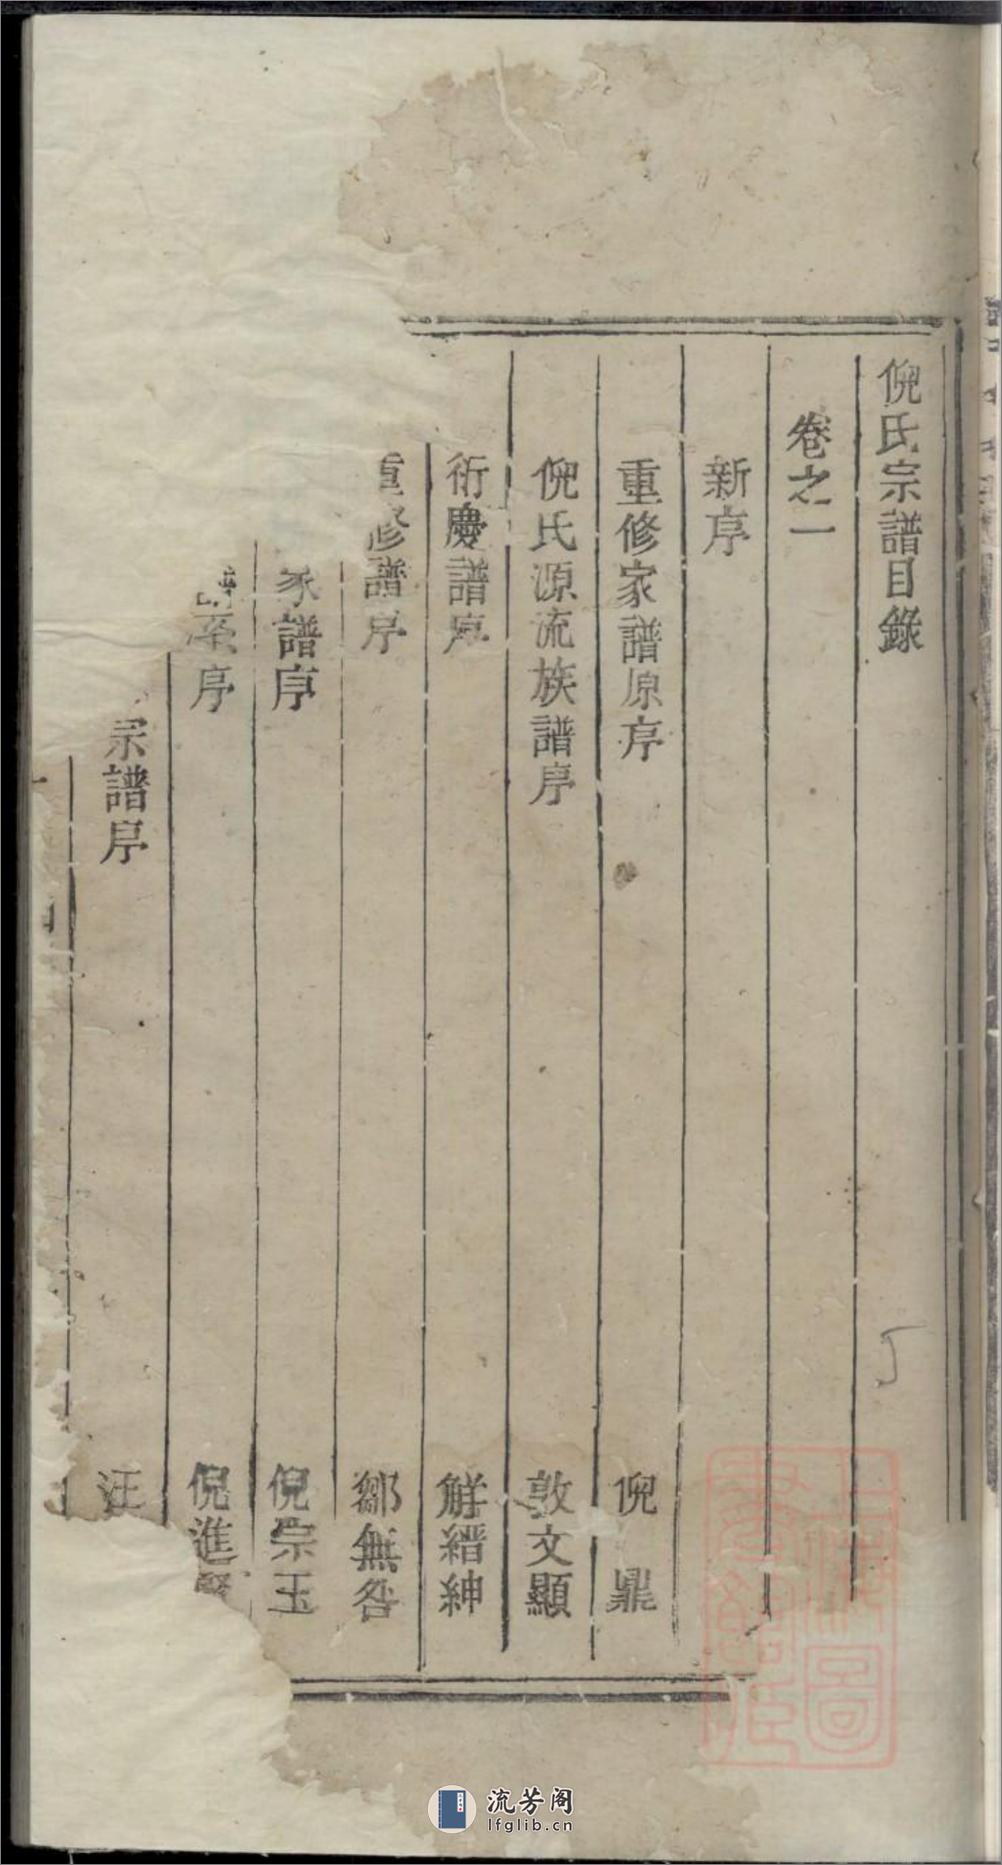 倪氏宗譜目錄
卷之一
新序
重修家譜原序 倪鼎
倪氏源流族譜序 敦文顯
衍慶譜序 觧縉紳
重修譜序 鄒無咎
家譜序 倪宗玉
序 倪進賢
宗譜序 汪
流芳阁
lfglib.cn